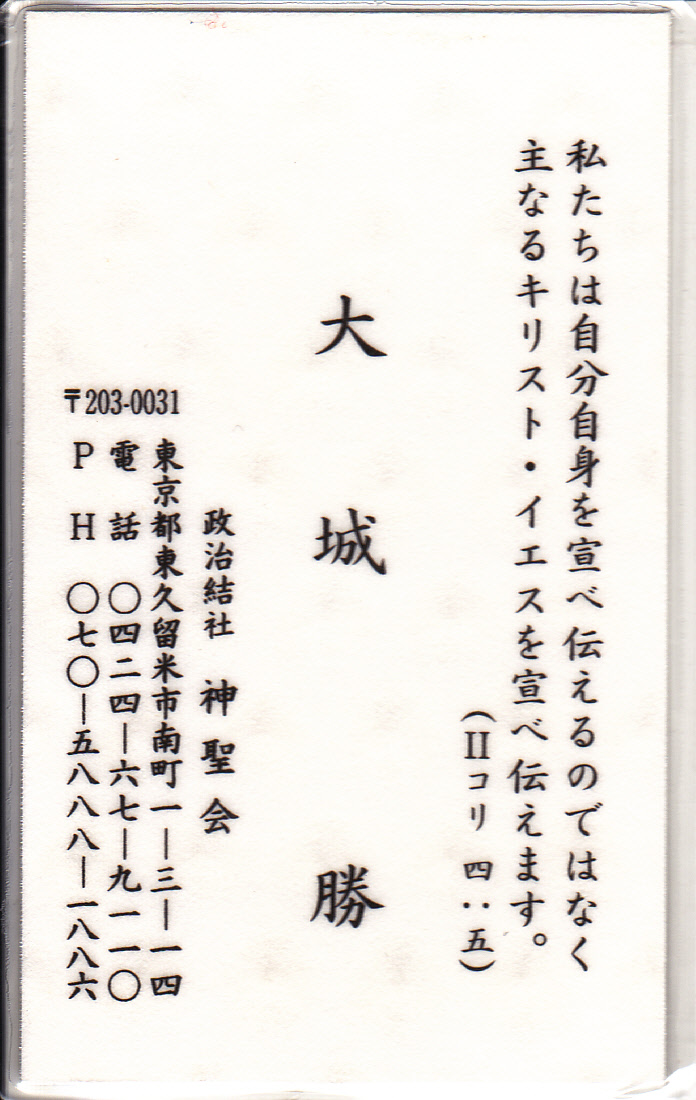 私たちは自分自身を宣べ伝えるのではなく
主なるキリスト・イエスを宣べ伝えます。
（Ⅱコリ 四：五）
大城 勝
政治結社 神聖会
〒203-0031
東京都東久留米市南町一―三―一四
電話 〇四二四―六七―九一一〇
PH 〇七〇―五八八八―一八八六